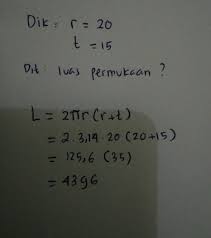 Dik = r = 20
t = 15
Dit : luas permukaan ?
L = 2πr (r+t)
= 2.3,14.20 (20+15)
= 125,6 (35)
= 4396